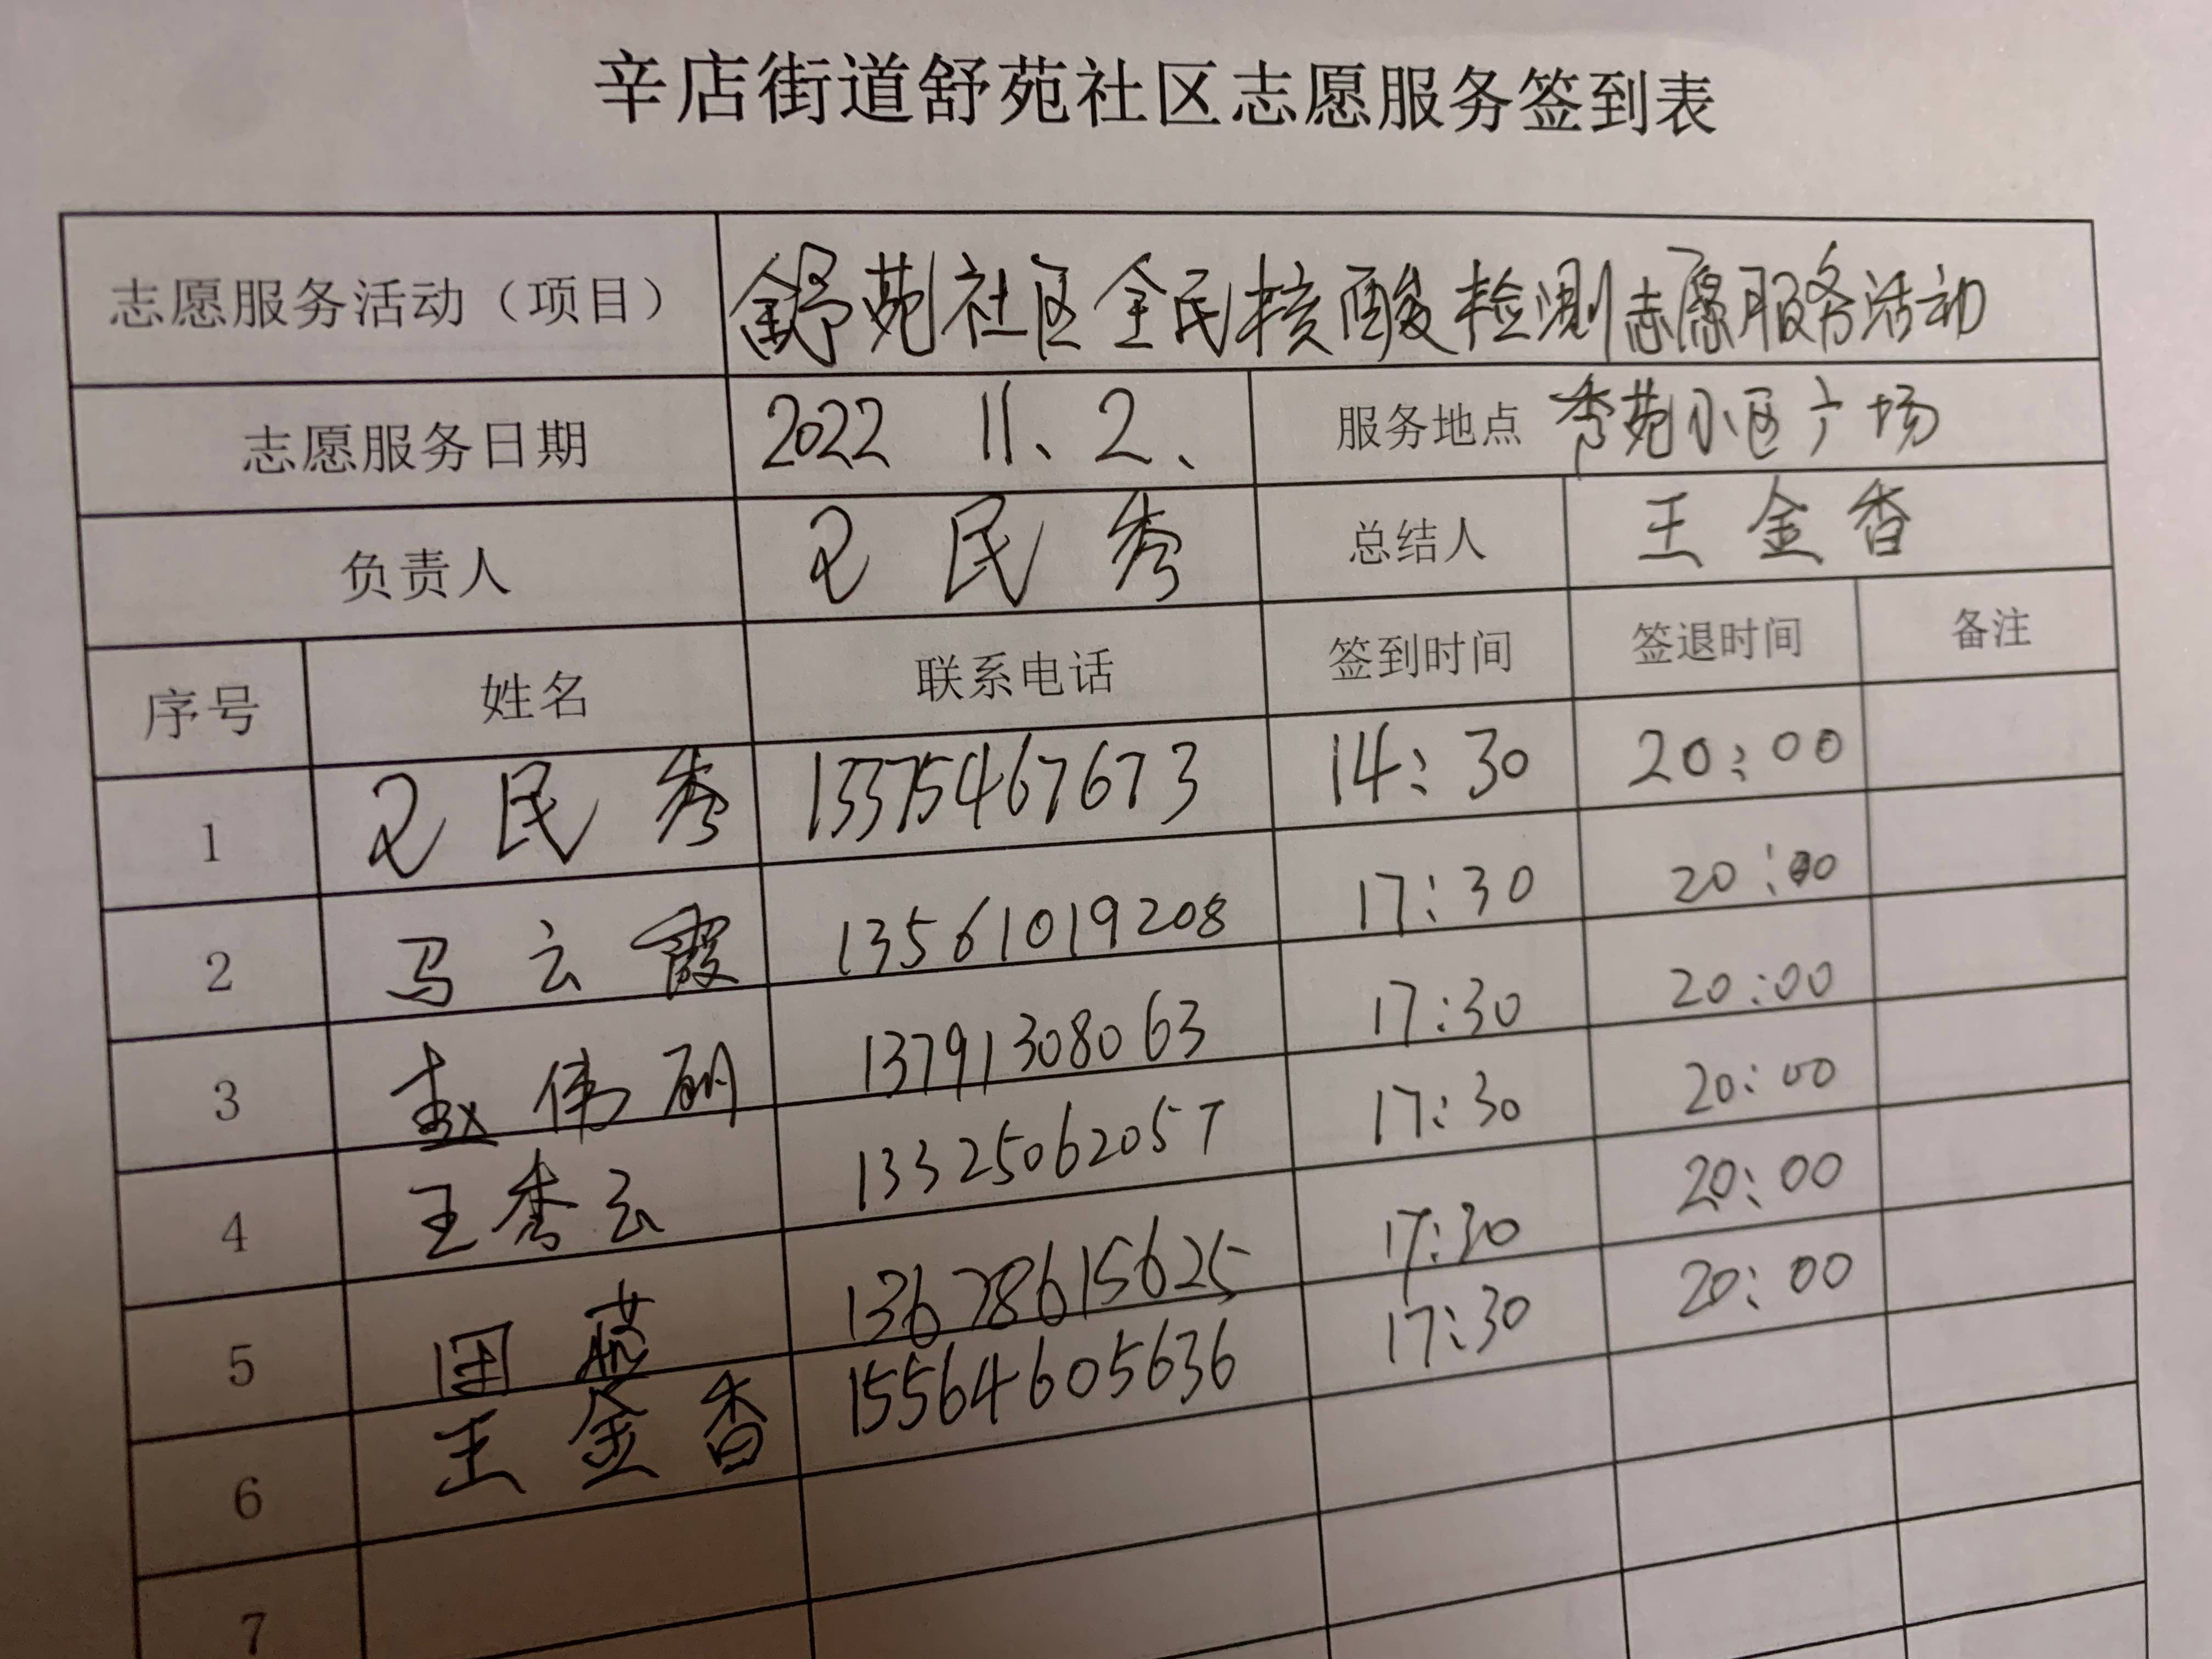 辛店街道舒苑社区志愿服务签到表
志愿服务活动（项目） 舒苑社区全民核酸检测志愿服务活动
志愿服务日期 2022 11、2、 服务地点 秀苑小区广场
负责人 民秀 总结人 王金香
序号 姓名 联系电话 签到时间 签退时间 备注
1 民秀 13375467673 14:30 20:00
2 马云霞 13561019208 17:30 20:00
3 赵伟 13791308063 17:30 20:00
4 王秀云 13325062057 17:30 20:00
5 13678615625 17:30 20:00
6 王金香 15564605636 17:30 20:00
7